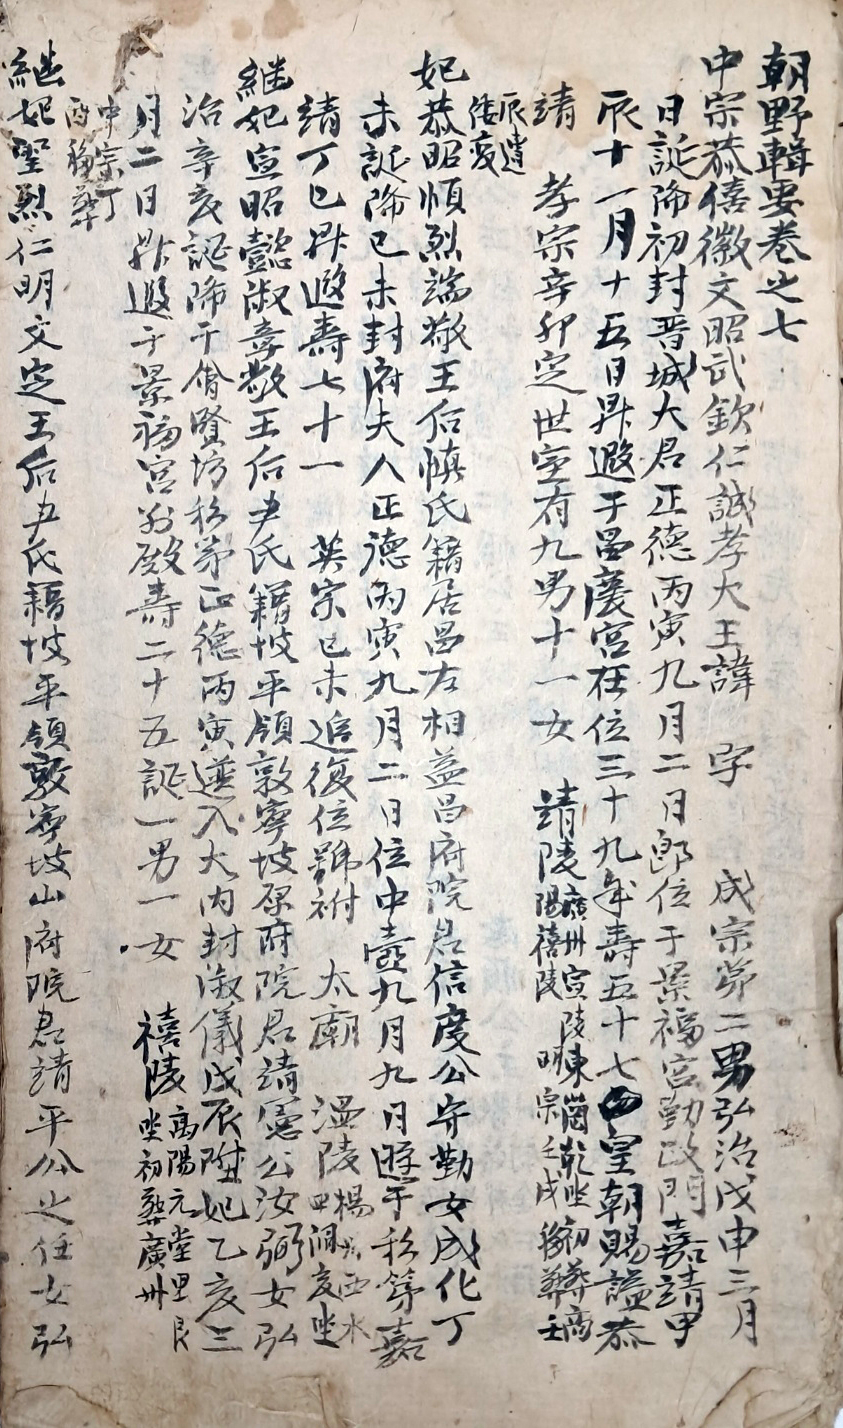 朝野輯要卷之七
中宗恭僖徽文昭武欽仁誠孝大王諱 字 成宗第二男弘治戊申三月
日誕降初封晋城大君正德丙寅九月二日卽位于景福宮勤政門嘉靖甲
辰十一月十五日昇遐于昌慶宮在位三十九年壽五十七 皇朝賜諡恭
靖 孝宗辛卯定世室有九男十一女 靖陵
廣州宣陵東崗乾坐初葬高
陽禧陵 明宗壬戌移葬壬
辰遭
倭变
妃恭昭順烈端敬王后愼氏籍居昌左相益昌府院君信度公守勤女成化丁
未誕降己未封府夫人正德丙寅九月二日位中壼九月九日遜于私第嘉
靖丁巳昇遐壽七十一 英宗己未追復位號祔 太廟 温陵
楊州西水
回洞亥坐
継妃宣昭懿淑章敬王后尹氏籍坡平領敦寧坡原府院君靖憲公汝弼女弘
治辛亥誕降于 賢坊私第正德丙寅選入大內封淑儀戊辰陞妃乙亥三
月二日昇遐于景福宮別殿壽二十五誕一男一女 禧陵
高陽元堂里艮
坐初葬廣州
中宗丁
酉移葬
継妃聖烈仁明文定王后尹氏籍坡平領敦寧坡山府院君靖平公之任女弘